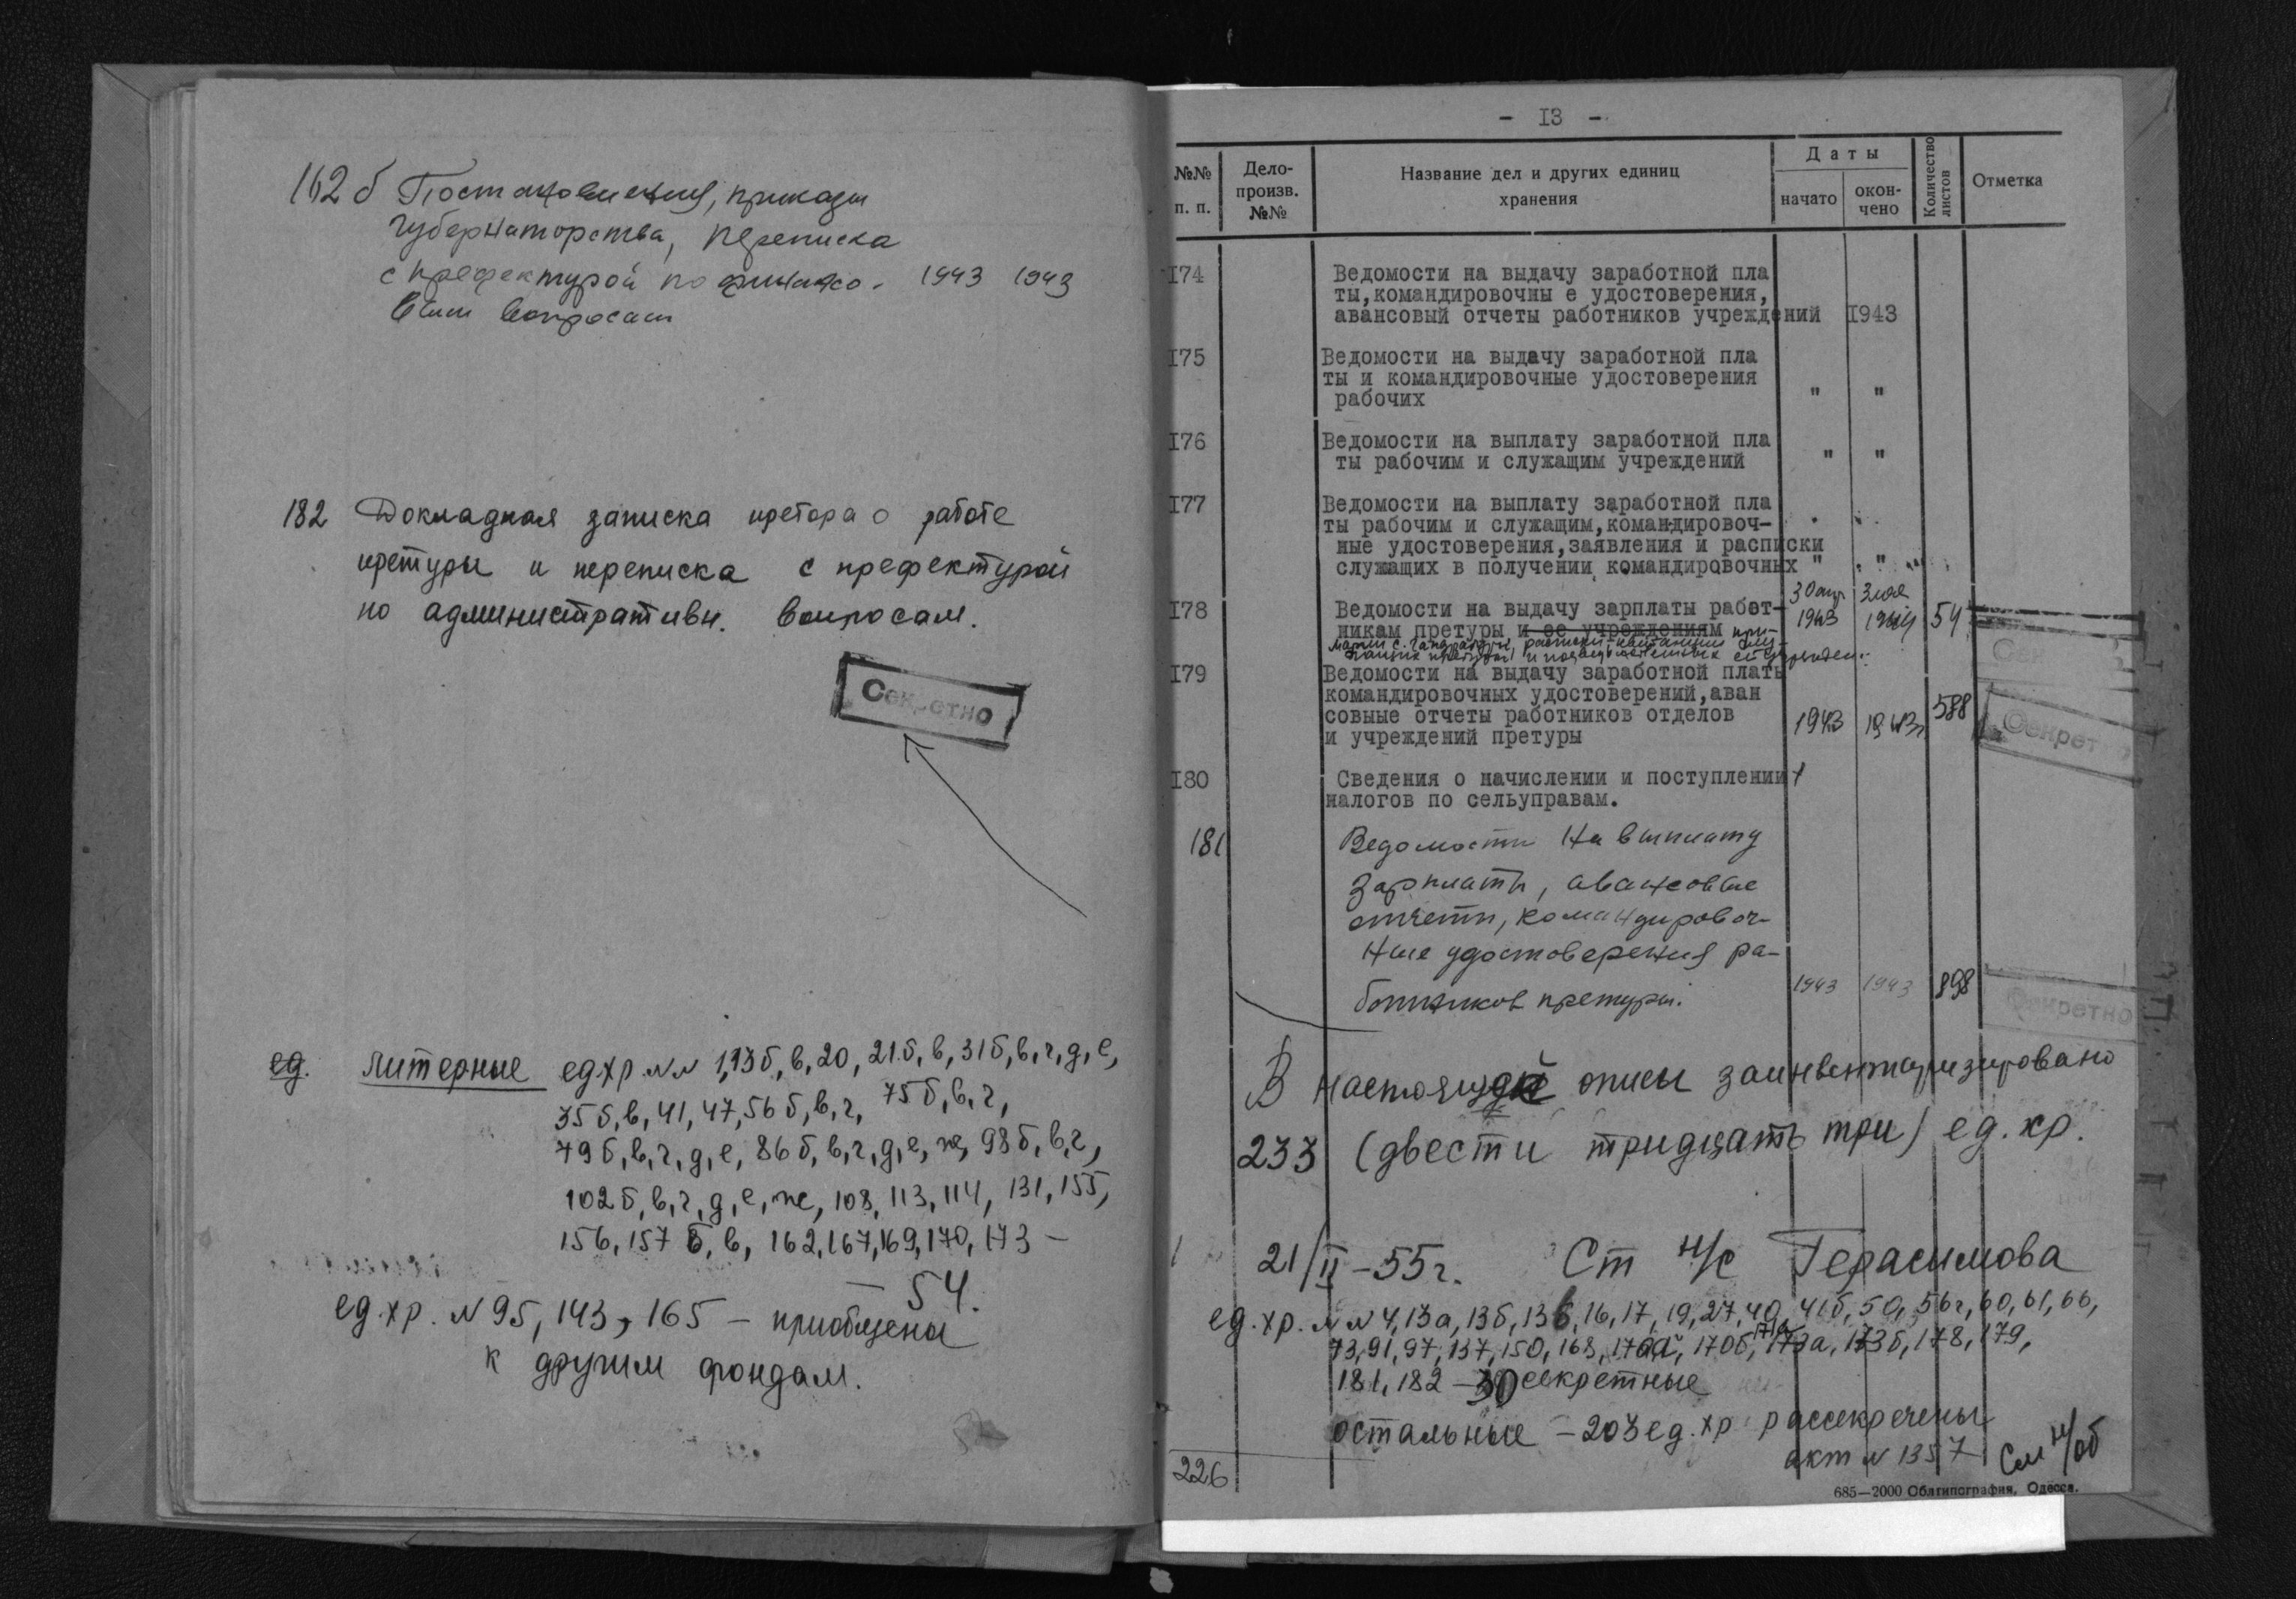 162 б Постановления, приказы
губернаторства, переписка
с префектурой по финансо- 1943 1943
вым вопросам
182 Докладная записка претора о работе
претуры и переписка с префектурой
по административн. вопросам.
Секретно
ед. литерные ед.хр. №№ 1, 13б, в, 20, 21б, в, 31б, в, г, д, е,
35б, в, 41, 47, 56б, в, г, 75б, в, г,
79б, в, г, д, е, 86б, в, г, д, е, ж, 98б, в, г,
102б, в, г, д, е, ж, 108, 113, 114, 131, 155,
156, 157 б, в, 162, 167, 169, 170, 173 –
54.
ед.хр. № 95, 143, 165 – приобщены
к другим фондам.
- I3 -
№№ п. п.
Дело-произв. №№
Название дел и других единиц хранения
Даты
начато
окон-чено
Количество листов
Отметка
I74 Ведомости на выдачу заработной пла
ты,командировочны е удостоверения,
авансовый отчеты работников учреждений I943
I75 Ведомости на выдачу заработной пла
ты и командировочные удостоверения
рабочих " "
I76 Ведомости на выплату заработной пла
ты рабочим и служащим учреждений " "
I77 Ведомости на выплату заработной пла
ты рабочим и служащим,командировоч-
ные удостоверения,заявления и расписки
служащих в получении командировочных " "
30 апр 3 мая
I78 Ведомости на выдачу зарплаты работ- 1943 1944 54
никам претуры и ее учреждениям при-
I79 Ведомости на выдачу заработной платы
командировочных удостоверений,аван
совыые отчеты работников отделов 1943 1943 588
и учреждений претуры
Секрет
I80 Сведения о начислении и поступлении
налогов по сельуправам.
181 Ведомости на выплату
зарплаты, авансовые
отчеты, командировоч-
ные удостоверения ра-
ботников претуры. 1943 1943 898
Секретно
В настоящей описи заинвентаризировано
233 (двести тридцать три) ед. хр.
21/II – 55г. Ст н/с Герасимова
ед. хр. №№ 4, 13а, 13б, 13в, 16, 17, 19, 27, 40, 41б, 50, 56г, 60, 61, 66,
73, 91, 97, 137, 150, 168, 170а, 170б, 171а, 173а, 173б, 178, 179,
181, 182 – 30 секретные
остальные – 203 ед. хр. рассекречены
акт № 1357 См н/об
226
685—2000 Облтипография, Одесса.